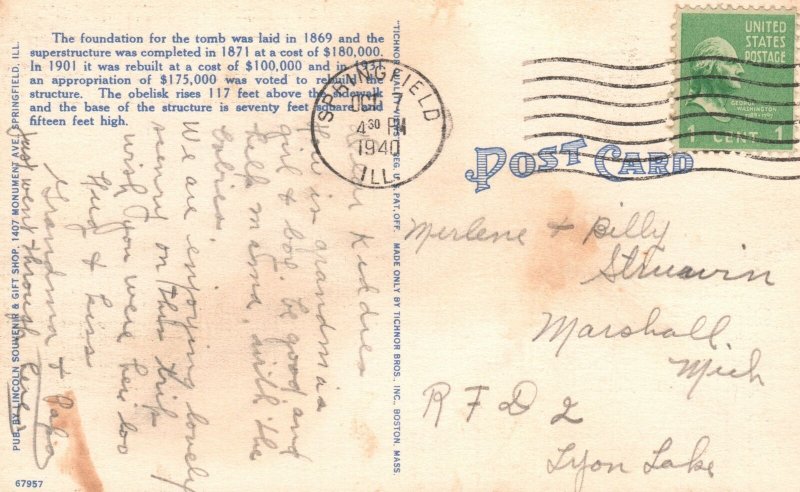 The foundation for the tomb was laid in 1869 and the
superstructure was completed in 1871 at a cost of $180,000.
In 1901 it was rebuilt at a cost of $100,000 and in
an appropriation of $175,000 was voted to rebuild the
structure. The obelisk rises 117 feet above the sidewalk
and the base of the structure is seventy feet square and
fifteen feet high.
PUB. BY LINCOLN SOUVENIR & GIFT SHOP, 1407 MONUMENT AVE., SPRINGFIELD, ILL.
67957
MADE ONLY BY TICHNOR BROS., INC., BOSTON, MASS.
SPRINGFIELD
OCT 7
4 30 PM
1940
ILL.
UNITED
STATES
POSTAGE
GEORGE
WASHINGTON
1 CENT 1
POST CARD
Kiddies
grandma's
girl & boy. be good and
help mama with the
babies
We are enjoying lovely
on this trip
wish you were here too
Hug & kiss
Grandma & Papa
Just went through
Merlene + Billy
Struwin
Marshall
Mich
R F D 2
Lyon Lake